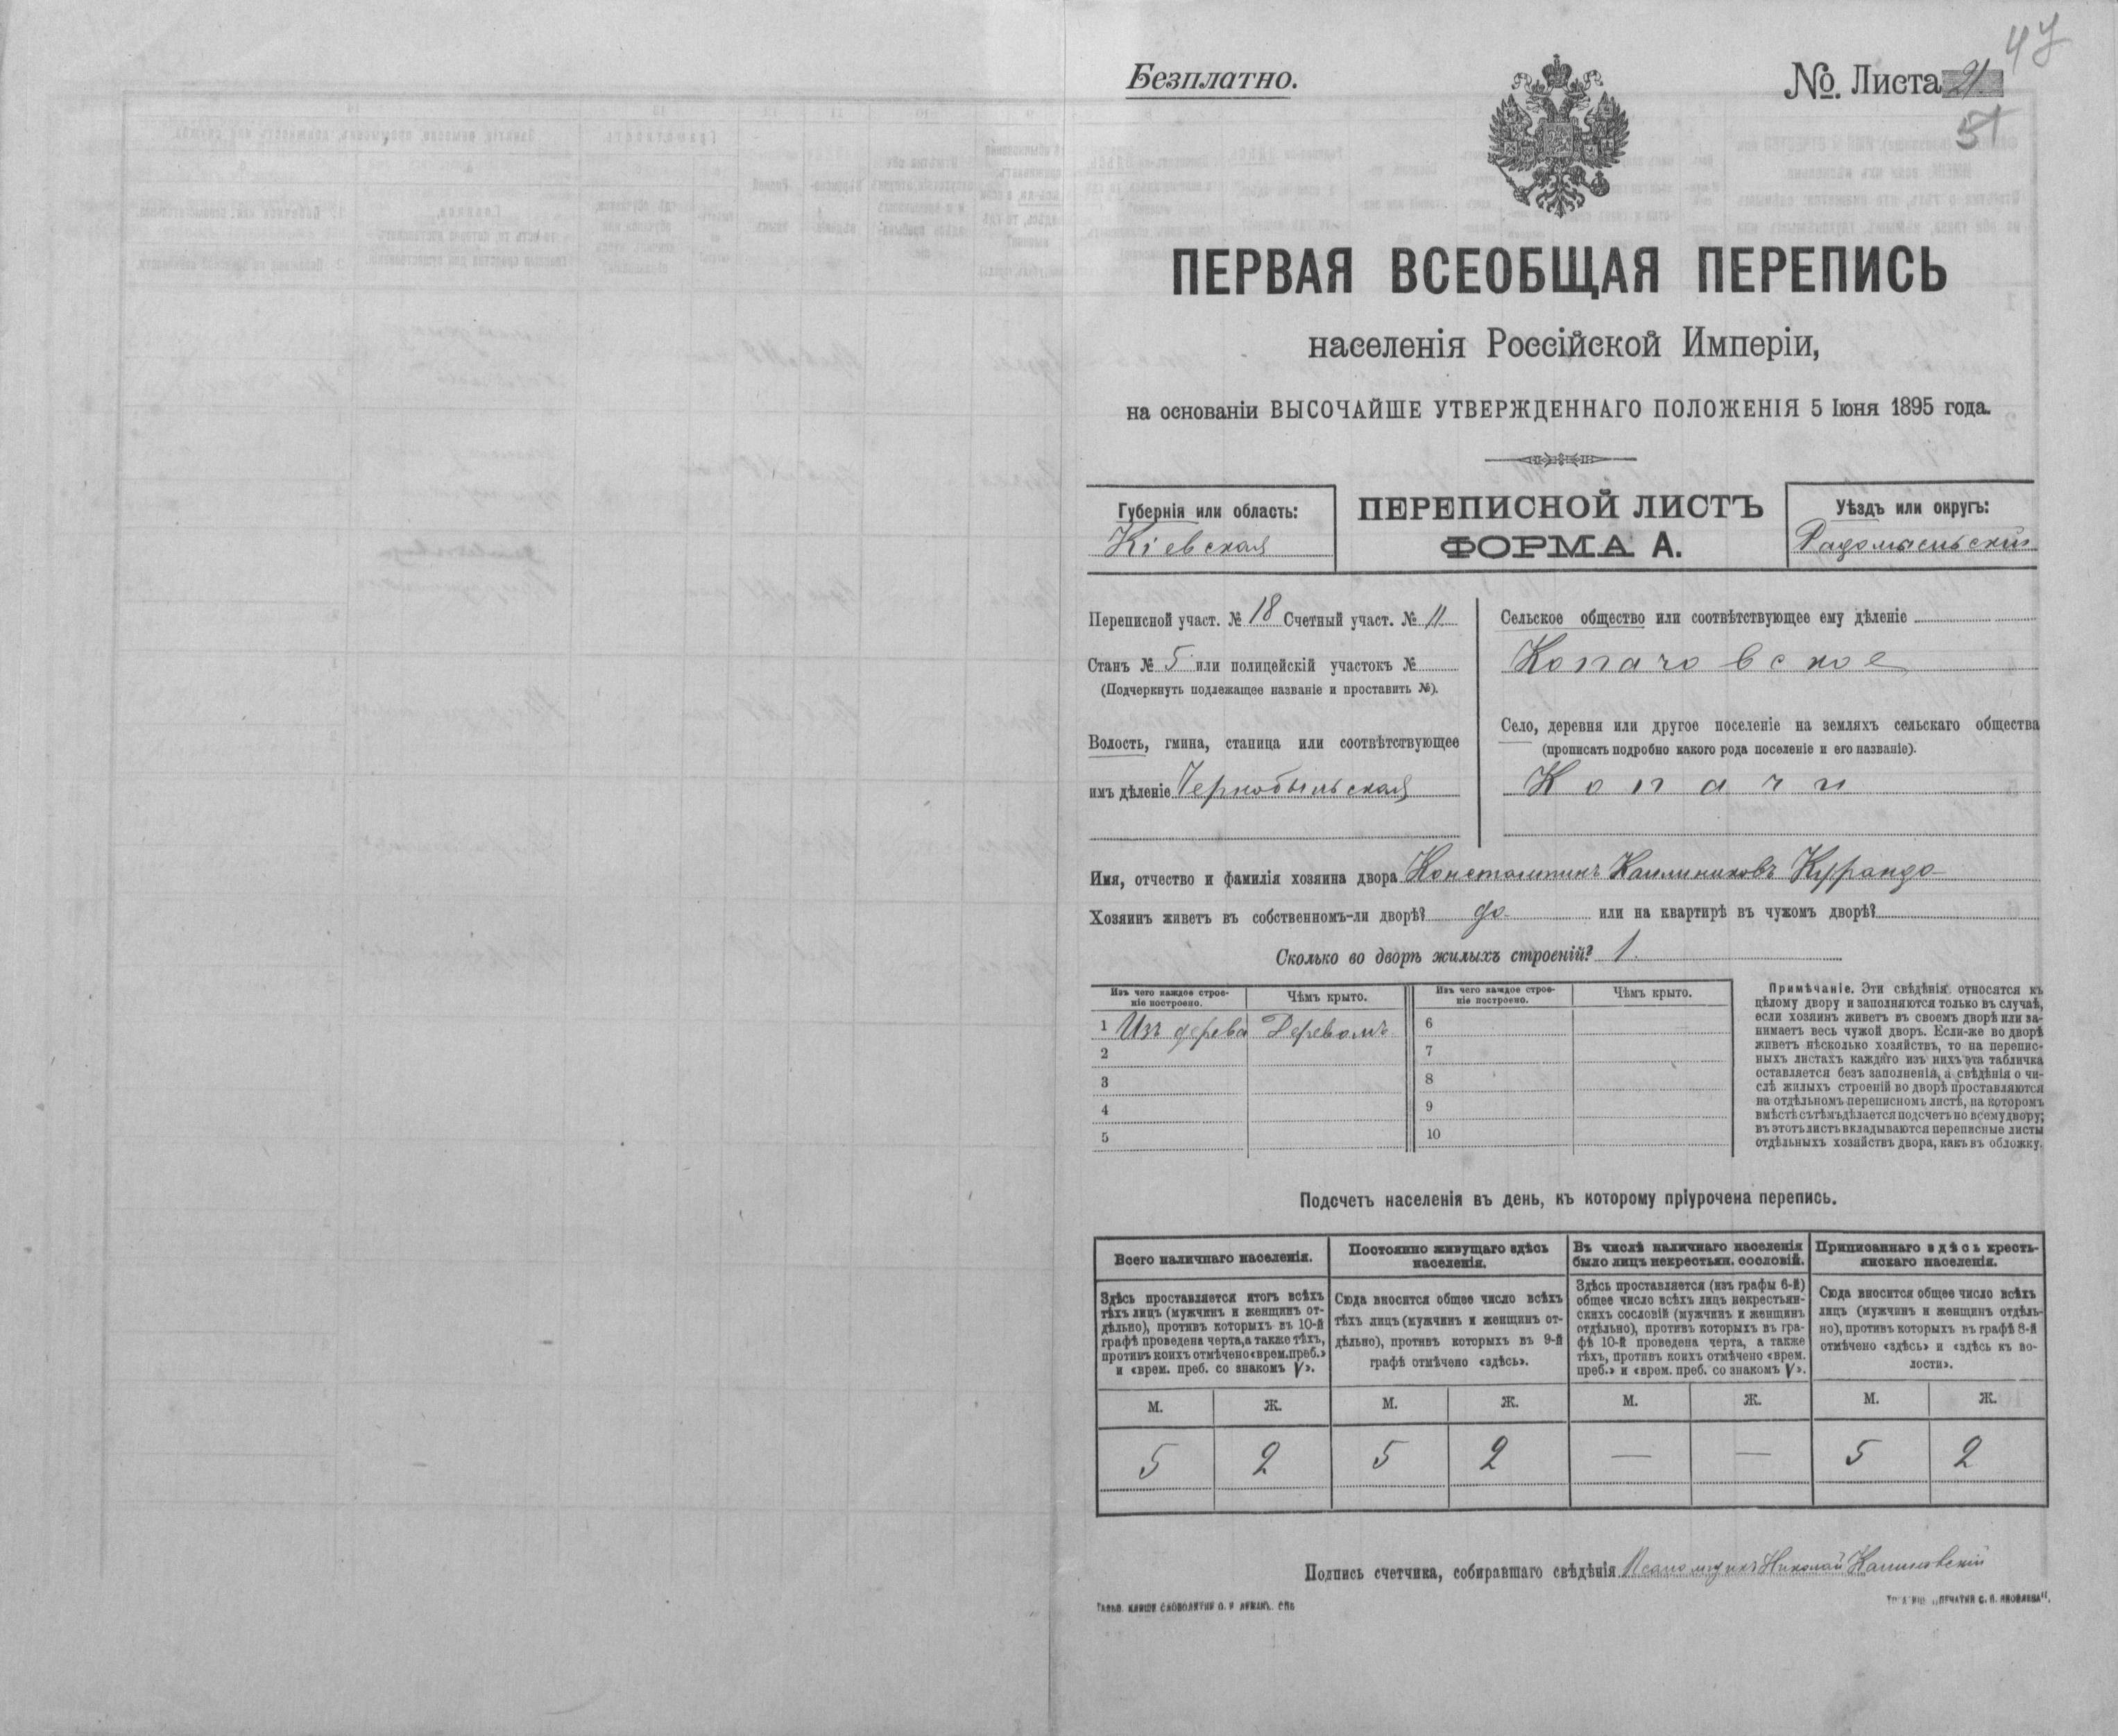 47
Безплатно.
№. Листа 21
51
ПЕРВАЯ ВСЕОБЩАЯ ПЕРЕПИСЬ
населенія Россійской Имперіи,
на основаніи ВЫСОЧАЙШЕ УТВЕРЖДЕННАГО ПОЛОЖЕНІЯ 5 Іюня 1895 года.
Губернія или область:
Кіевская
ПЕРЕПИСНОЙ ЛИСТЪ
ФОРМА А.
Уѣздъ или округъ:
Радомысльскій
Переписной участ. № 18 Счетный участ. № 11
Станъ № 5 или полицейскій участокъ №
(Подчеркнуть подлежащее названіе и проставить №).
Волость, гмина, станица или соотвѣтствующее
имъ дѣленіе Чернобыльская
Сельское общество или соотвѣтствующее ему дѣленіе
Копачовское
Село, деревня или другое поселеніе на земляхъ сельскаго общества
(прописать подробно какого рода поселеніе и его названіе).
Копачи
Имя, отчество и фамилія хозяина двора Константинъ Калиниковъ Курандо
Хозяинъ живетъ въ собственномъ-ли дворѣ? да или на квартирѣ въ чужомъ дворѣ?
Сколько во дворѣ жилыхъ строеній? 1.
Изъ чего каждое строе-
ніе построено.
Чѣмъ крыто.
Изъ чего каждое строе-
ніе построено.
Чѣмъ крыто.
1 Изъ дерева Деревомъ 6
2 7
3 8
4 9
5 10
Примѣчаніе. Эти свѣдѣнія относятся къ
цѣлому двору и заполняются только въ случаѣ,
если хозяинъ живетъ въ своемъ дворѣ или за-
нимаетъ весь чужой дворъ. Если-же во дворѣ
живетъ нѣсколько хозяйствъ, то на перепис-
ныхъ листахъ каждаго изъ нихъ эта табличка
оставляется безъ заполненія, а свѣдѣнія о чи-
слѣ жилыхъ строеній во дворѣ проставляются
на отдѣльномъ переписномъ листѣ, на которомъ
вмѣстѣ съ тѣмъ дѣлается подсчетъ по всему двору;
въ этотъ листъ вкладываются переписные листы
отдѣльныхъ хозяйствъ двора, какъ въ обложку.
Подсчетъ населенія въ день, къ которому пріурочена перепись.
Всего наличнаго населенія.
Здѣсь проставляется итогъ всѣхъ
тѣхъ лицъ (мужчинъ и женщинъ от-
дѣльно), противъ которыхъ въ 10-й
графѣ проведена черта, а также тѣхъ,
противъ коихъ отмѣчено «врем. преб.»
и «врем. преб. со знакомъ V».
Постоянно живущаго здѣсь
населенія.
Сюда вносится общее число всѣхъ
тѣхъ лицъ (мужчинъ и женщинъ от-
дѣльно), противъ которыхъ въ 9-й
графѣ отмѣчено «здѣсь».
Въ числѣ наличнаго населенія
было лицъ некрестьян. сословій.
Здѣсь проставляется (изъ графы 6-й)
общее число всѣхъ лицъ некрестьян-
скихъ сословій (мужчинъ и женщинъ
отдѣльно), противъ которыхъ въ гра-
фѣ 10-й проведена черта, а также
тѣхъ, противъ коихъ отмѣчено «врем.
преб.» и «врем. преб. со знакомъ V».
Приписаннаго здѣсь кресть-
янскаго населенія.
Сюда вносится общее число всѣхъ
лицъ (мужчинъ и женщинъ отдѣль-
но), противъ которыхъ въ графѣ 8-й
отмѣчено «здѣсь» и «здѣсь къ во-
лости».
М. Ж. М. Ж. М. Ж. М. Ж.
5 2 5 2 — — 5 2
Подпись счетчика, собиравшаго свѣдѣнія Псаломщикъ Николай